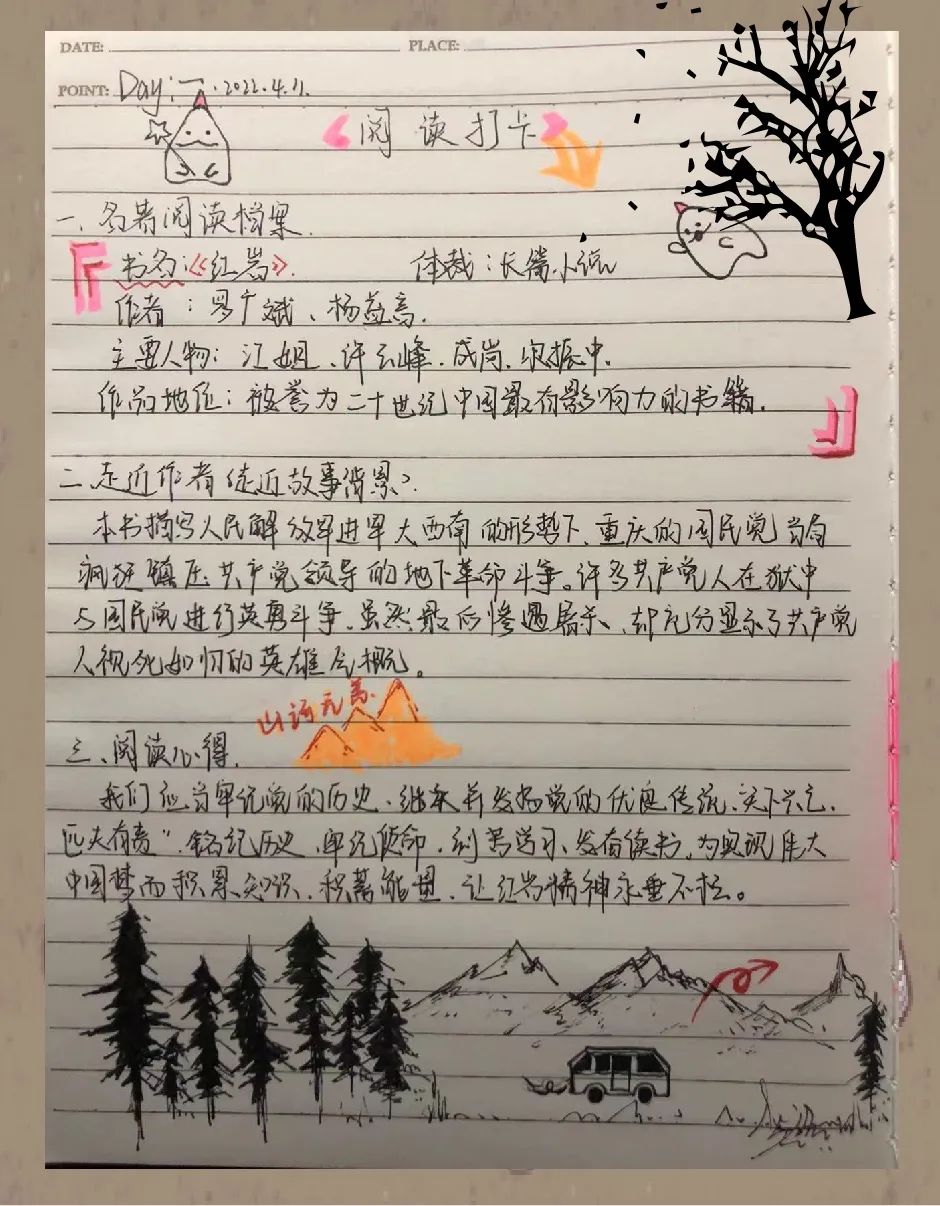 DATE: PLACE:
POINT: Day:一.2022.4.11.
阅读打卡
一.名著阅读档案.
书名:《红岩》. 体裁:长篇小说
作者:罗广斌、杨益言.
主要人物:江姐、许云峰、成岗、
作品地位:被誉为二十世纪中国最有影响力的书籍.
二.走近作者 走近故事背景
本书描写人民解放军进军大西南的形势下,重庆的国民党当局
疯狂镇压共产党领导的地下革命斗争。许多共产党人在狱中
与国民党进行英勇斗争,虽然最后惨遇屠杀、却充分显示了共产党
人视死如归的英雄气概。
山河无恙
三、阅读心得.
我们应当牢记党的历史,继承并发扬党的优良传统,天下兴亡,
匹夫有责",铭记历史,牢记使命,刻苦学习、发奋读书,为实现伟大
中国梦而积累知识、积蓄能量,让红岩精神永垂不朽。